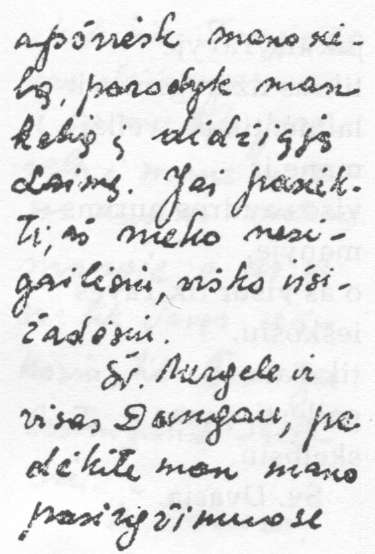 apšviesk mano sie-
lą, parodyk man
kelią į didžiąją
dainą. Jas pasiek-
ti, aš nieko nesi-
gailėsiu, visko išsi-
žadėsiu.
Šv. Mergele ir
visas Dangau, pa
dėkite man mano
pasiryžimuose